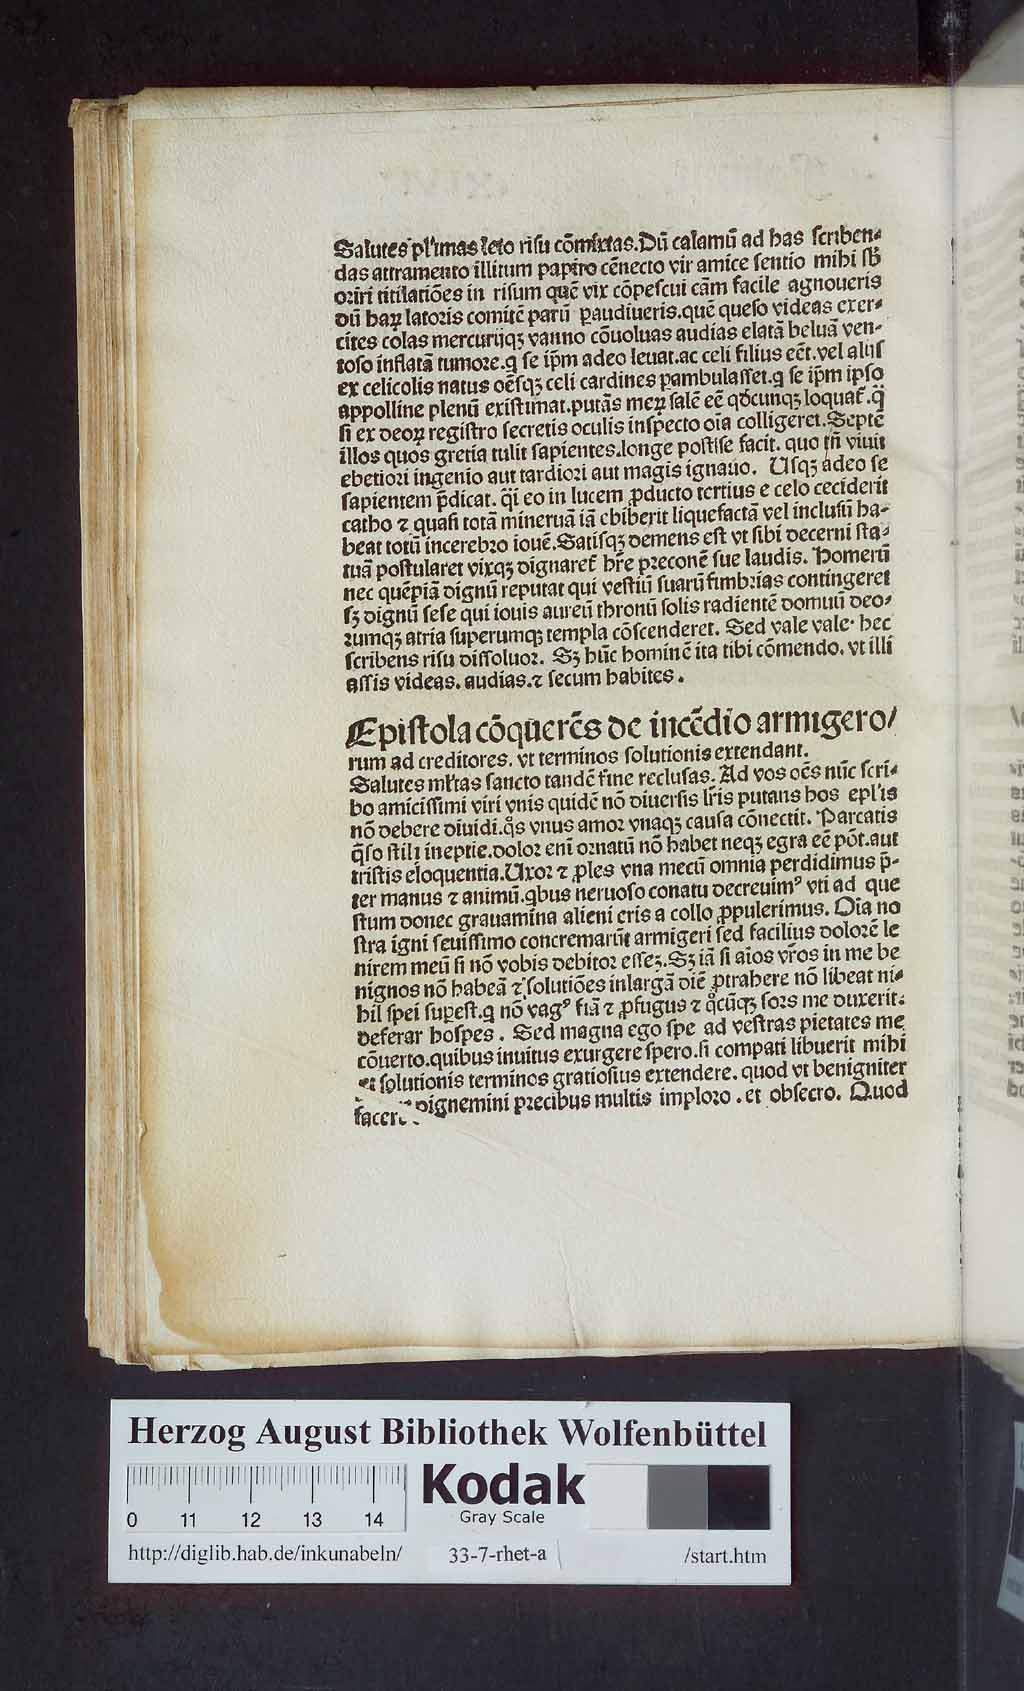 Salutes pl'imas leto risu cōmixtas.Dū calamū ad has scriben-
das attramento illitum papiro cēnecto vir amice sentio mihi sb̄
oriri titilatiōes in risum quē vix cōpescui cām facile agnoueris
dū haꝝ latoris comitē parū ꝑaudiueris.quē queso videas exer-
cites colas mercurijqꝫ vanno cōuoluas audias elatā beluā ven-
toso inflatā tumore.q se ip̄m adeo leuat.ac celi filius eēt.vel alijs
ex celicolis natus oēsqꝫ celi cardines ꝑambulasset.q se ip̄m ipso
appolline plenū existimat.putās meꝝ salē eē qd̄cunqꝫ loquat᷑.q̄
si ex deoꝝ registro secretis oculis inspecto oīa colligeret.Septē
illos quos gretia tulit sapientes.longe postise facit. quo tn̄ viuit
ebetiori ingenio aut tardiori aut magis ignauo. Usqꝫ adeo se
sapientem p̄dicat. q̄i eo in lucem ꝓducto tertius e celo ceciderit
catho ⁊ quasi totā mineruā iā ebiberit liquefactā vel inclusū ha-
beat totū incerebro iouē.Satisqꝫ demens est vt sibi decerni sta-
tuā postularet vixqꝫ dignaret᷑ hr̄e preconē sue laudis. Homerū
nec quēpiā dignū reputat qui vestiū suarū fimbrias contingeret
sꝫ dignū sese qui iouis aureū thronū solis radientē domuū deo-
rumqꝫ atria superumqꝫ templa cōscenderet. Sed vale vale· hec
scribens risu dissoluor. Sꝫ hūc hominē ita tibi cōmendo. vt illi
assis videas. audias.⁊ secum habites.
Epistola cōquerēs de incēdio armigero/
rum ad creditores. vt terminos solutionis extendant.
Salutes ml'tas sancto tandē fine reclusas. Ad vos oēs nūc scri-
bo amicissimi viri vnis quidē nō diuersis lr̄is putans hos epl'is
nō debere diuidi.qͦs vnus amor vnaqꝫ causa cōnectit. Parcatis
q̄so stili ineptie.dolor enī ornatū nō habet neqꝫ egra eē pōt.aut
tristis eloquentia.Uxor ⁊ ꝓles vna mecū omnia perdidimus p̄-
ter manus ⁊ animū.qbus neruoso conatu decreuimꝰ vti ad que
stum donec grauamina alieni eris a collo ꝓpulerimus. Oīa no
stra igni seuissimo concremarūt armigeri sed facilius dolorē le
nirem meū si nō vobis debitor essez.Sꝫ iā si aīos vr̄os in me be
nignos nō habeā ⁊ solutiōes inlargā diē ꝓtrahere nō libeat ni-
hil spei suꝑest.q nō vagꝰ fiā ⁊ ꝓfugus ⁊ qͦcūqꝫ sors me duxerit:
deferar hospes. Sed magna ego spe ad vestras pietates me
cōuerto.quibus inuitus exurgere spero.si compati libuerit mihi
et solutionis terminos gratiosius extendere. quod vt benigniter
facere dignemini precibus multis imploro.et obsecro. Quod
Herzog August Bibliothek Wolfenbüttel
Kodak
Gray Scale
0 11 12 13 14
http://diglib.hab.de/inkunabeln/ 33-7-rhet-a /start.htm